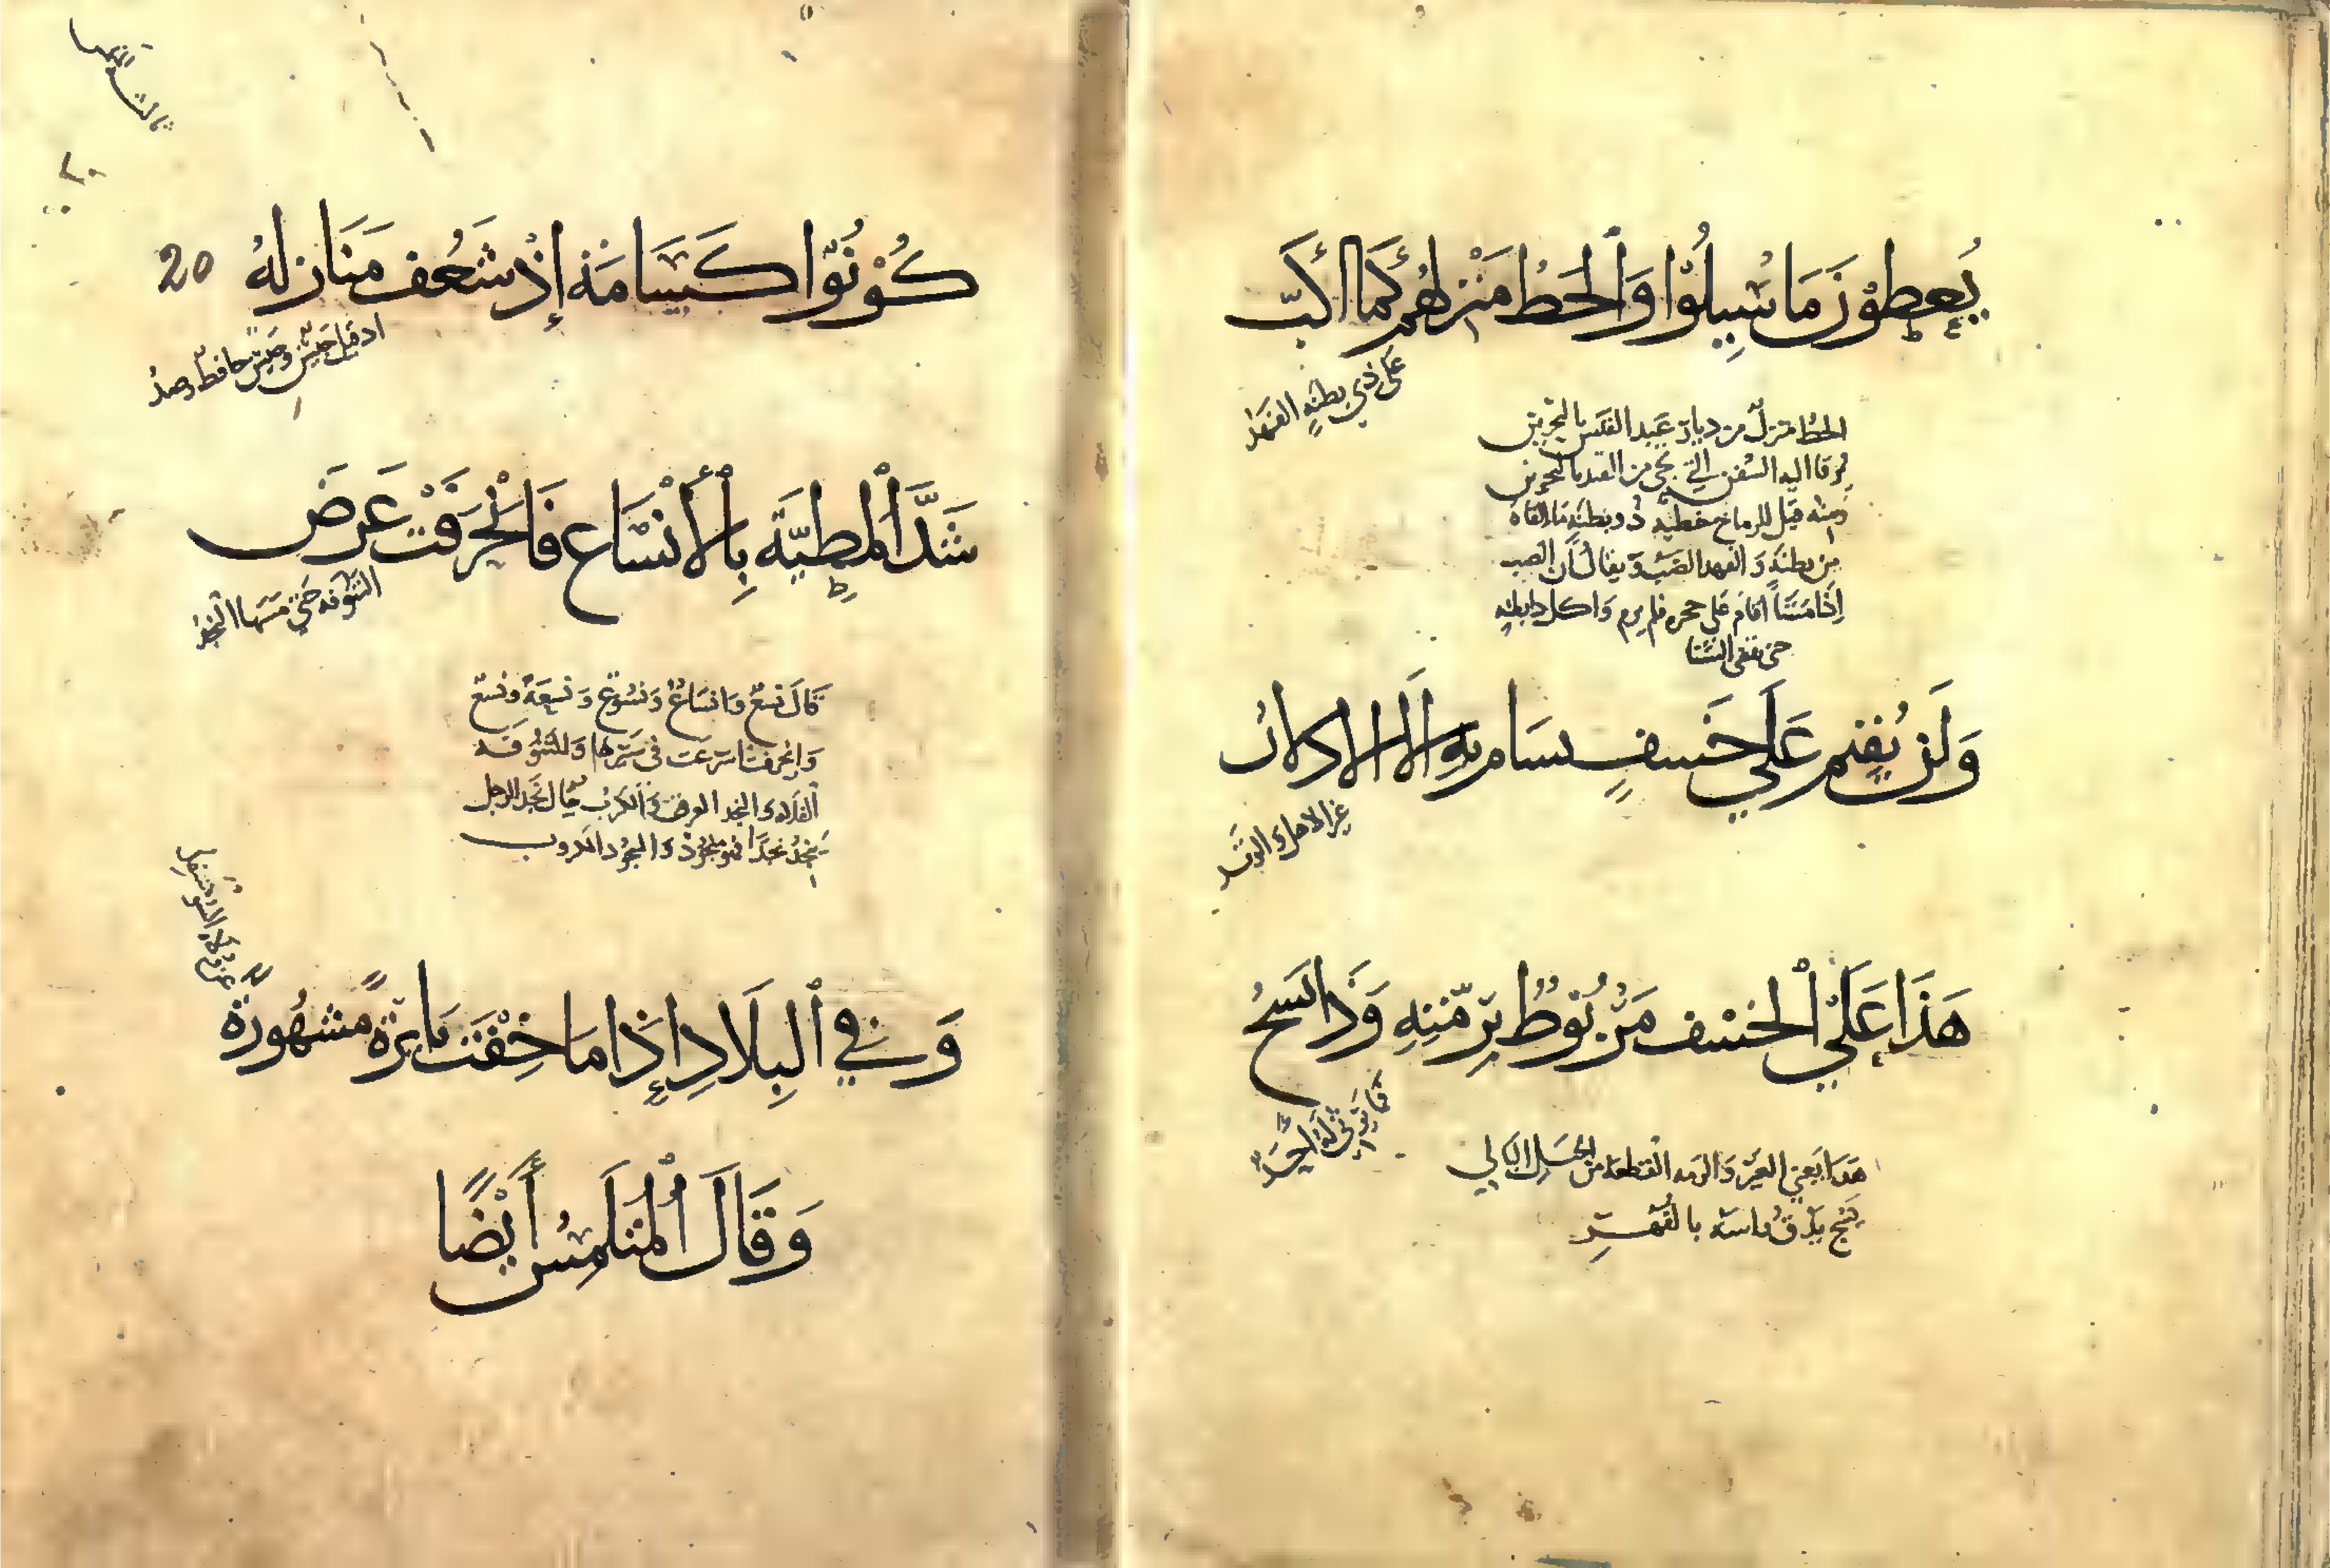 يُعْطَوْنَ مَا سُيِلُوْا وَٱلْخَطُّ مَنْزِلُهُمْ كَمَا أَكَبَّ
عَلَى ذِي بَطْنِهِ الفَهَدُ
الخط منزل من ديار عبد القيس بالبحرين
ترقا اليه السفن التي تجي من الهند بالبحرين
ومنه قيل للرماح خطيه ذو بطنه ما القاه
من بطنه و الفهد الضب ويقال ان الضب
اذا شتا اقام على جحره فلم يرم واكل ذا بطنه
حتى ينقضي الشتا
وَلَنْ يُقِيْمَ عَلَى خَسْفٍ يُسَامُ بِهِ إِلَّا الاذلان
عير الاهل والوتد
هَذَا عَلَى ٱلْخَسْفِ مَرْبُوْطٌ بِرُمَّتِهِ وَذَا يُشَجُّ
فَمَا يَرْثِي لَهُ أَحَدُ
هذا يعني العير والرمه القطعه من الحبل البالي
يشج يدق راسه بالفهر
20
كُوْنُوْا كَسَامَةَ إِذْ شَعْفٌ مَنَازِلُهُ
اذ قيل جيش وجيش حافظ رصد
شَدَّ ٱلْمَطِيَّةَ بِٱلْأَنْسَاعِ فَٱنْحَرَفَتْ عَرْضَ
التنوفه حتى مسها النجد
يقال نسع وانساع ونسوع ونسعة ونسع
وانحرفت اسرعت في سيرها والتنوفه
الفلاه والنجد العرق والكرب يقال نجد الرجل
ينجد نجدا فهو منجود والمنجود المكروب
وَفِي ٱلْبِلَادِ إِذَا مَا خِفْتَ نَائِرَةً مَشْهُورَةً
وَقَالَ ٱلْمُتَلَمِّسُ أَيْضًا